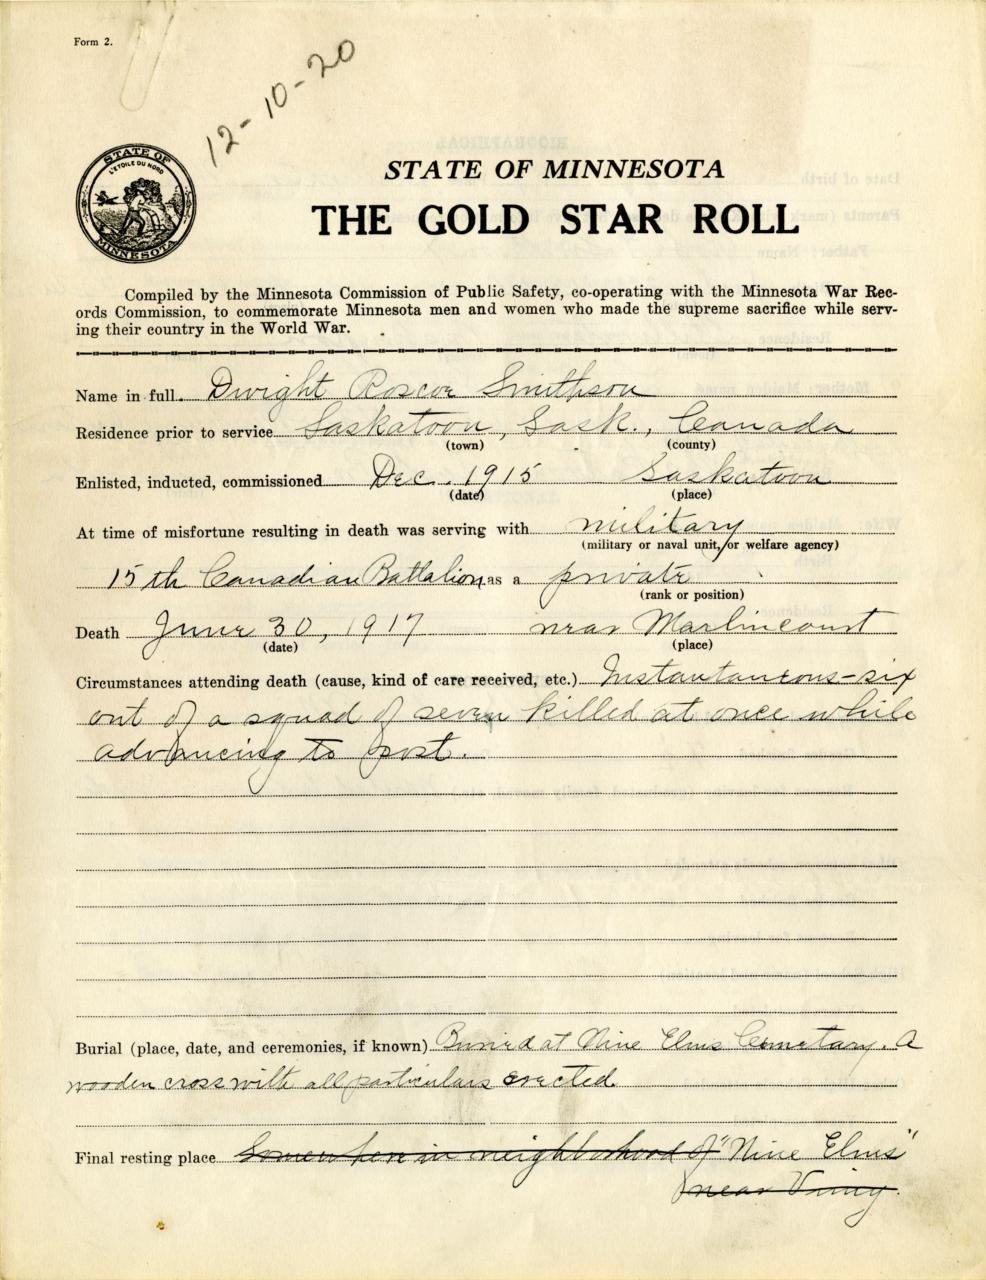 Form 2.
12-10-20
STATE OF
L'ETOILE DU NORD
MINNESOTA
STATE OF MINNESOTA
THE GOLD STAR ROLL
Compiled by the Minnesota Commission of Public Safety, co-operating with the Minnesota War Rec-
ords Commission, to commemorate Minnesota men and women who made the supreme sacrifice while serv-
ing their country in the World War.
Name in full Dwight Roscoe Smithson
Residence prior to service Saskatoon, Sask., Canada
(town) (county)
Enlisted, inducted, commissioned Dec. 1915 Saskatoon
(date) (place)
At time of misfortune resulting in death was serving with military
(military or naval unit, or welfare agency)
15th Canadian Battalion, as a private
(rank or position)
Death June 30, 1917 near Marlincourt
(date) (place)
Circumstances attending death (cause, kind of care received, etc.) Instantaneous-six
out of a squad of seven killed at once while
advancing to post.
Burial (place, date, and ceremonies, if known) Buried at Nine Elms Cemetary. A
wooden cross with all particulars erected.
Final resting place Somewhere in neighborhood of "Nine Elms"
near Vimy.